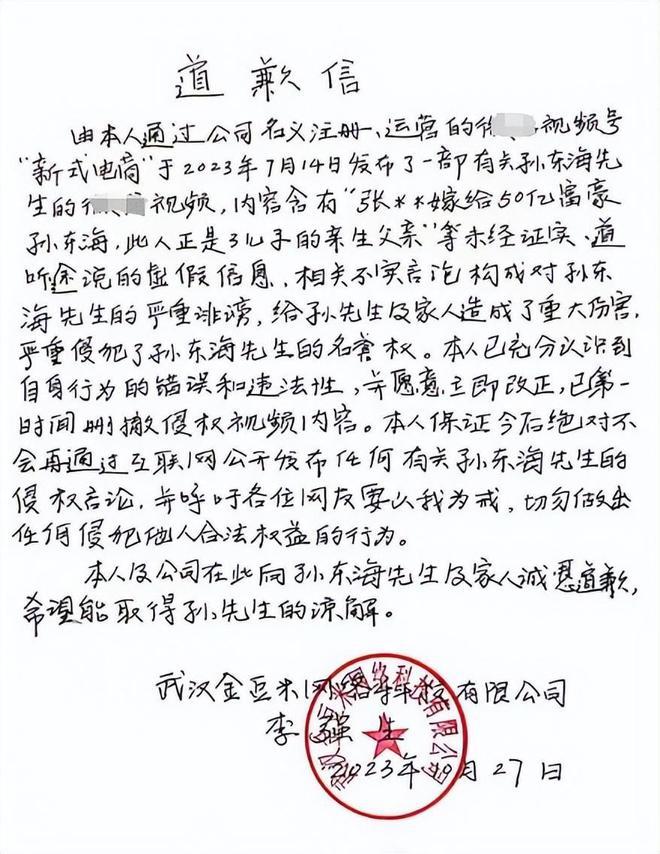 道歉信
由本人通过公司名义注册、运营的微视频号
"新式电商"于2023年7月14日发布了一部有关孙东海先
生的视频,内容含有"张**嫁给50亿富豪
孙东海,此人正是3儿子的亲生父亲"等未经证实、道
听途说的虚假信息,相关不实言论构成对孙东
海先生的严重诽谤,给孙先生及家人造成了重大伤害,
严重侵犯了孙东海先生的名誉权。本人已充分认识到
自身行为的错误和违法性,并愿意立即改正,已第一
时间删撤侵权视频内容。本人保证今后绝对不
会再通过互联网公开发布任何有关孙东海先生的
侵权言论,并呼吁各位网友要以我为戒,切勿做出
任何侵犯他人合法权益的行为。
本人及公司在此向孙东海先生及家人诚恳道歉,
希望能取得孙先生的谅解。
武汉金豆米网络科技有限公司
李强生
2023年10月27日